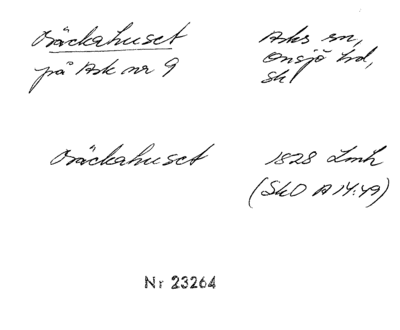 Bäckahuset
på Ask nr 9
Asks sn,
Onsjö hd,
Sk
Bäckahuset
1828 Lmh
(SkO A 14:49)
Nr 23264